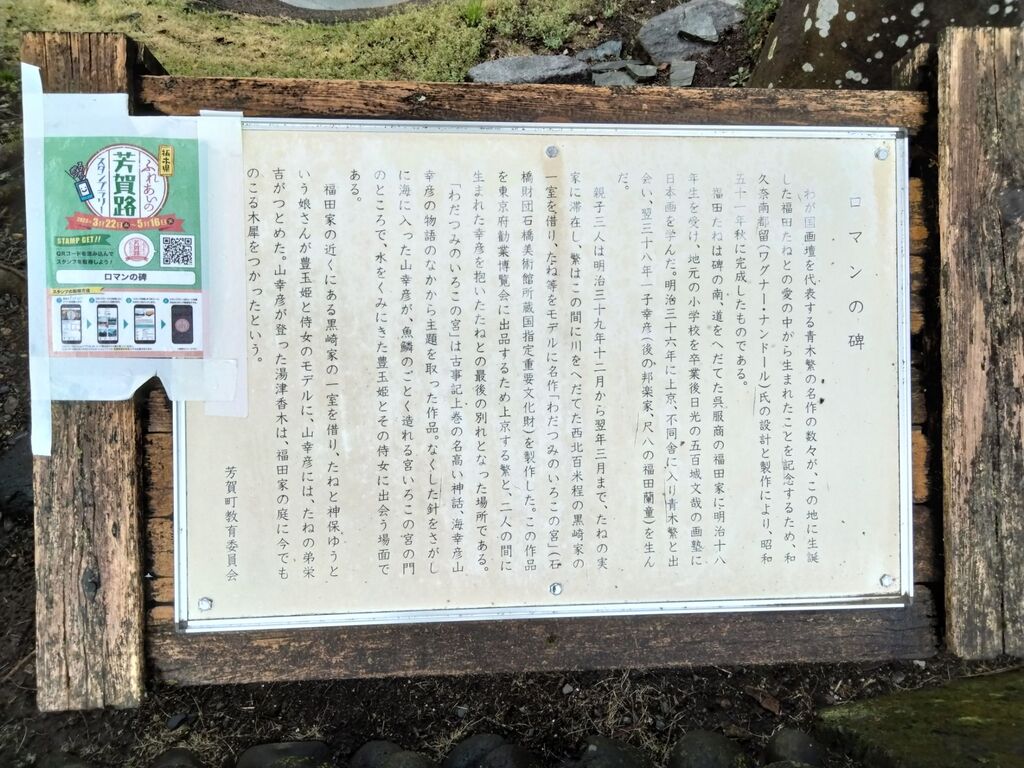 ロマンの碑
わが国画壇を代表する青木繁の名作の数々が、この地に生誕
した福田たねとの愛の中から生まれたことを記念するため、和
久奈南都留(ワグナ・ナンドール)氏の設計と製作により、昭和
五十一年秋に完成したものである。
福田たねは碑の南、道をへだてた呉服商の福田家に明治十八
年生を受け、地元の小学校を卒業後日光の五百城文哉の画塾に
日本画を学んだ。明治三十六年に上京、不同舎に入り青木繁と出
会い、翌三十八年一子幸彦(後の邦楽家、尺八の福田蘭童)を生ん
だ。
親子三人は明治三十九年十二月から翌年三月まで、たねの実
家に滞在し、繁はこの間に川をへだてた西北百米程の黒崎家の
一室を借り、たね等をモデルに名作「わだつみのいろこの宮」(石
橋財団石橋美術館所蔵国指定重要文化財)を製作した。この作品
を東京府勧業博覧会に出品するため上京する繁と、二人の間に
生まれた幸彦を抱いたたねとの最後の別れとなった場所である。
「わだつみのいろこの宮」は古事記上巻の名高い神話、海幸彦山
幸彦の物語のなかから主題を取った作品。なくした針をさがし
に海に入った山幸彦が、魚鱗のごとく造れる宮いろこの宮の門
のところで、水をくみにきた豊玉姫とその侍女に出会う場面で
ある。
福田家の近くにある黒崎家の一室を借り、たねと神保ゆうと
いう娘さんが豊玉姫と侍女のモデルに、山幸彦には、たねの弟栄
吉がつとめた。山幸彦が登った湯津香木は、福田家の庭に今でも
のこる木犀をつかったという。
芳賀町教育委員会
栃木県
ふれあいの
芳賀路
スタンプラリー
3月22日
5月16日
STAMP GET!!
QRコードを読み込んで
スタンプを取得しよう!
ロマンの碑
スタンプの取得方法